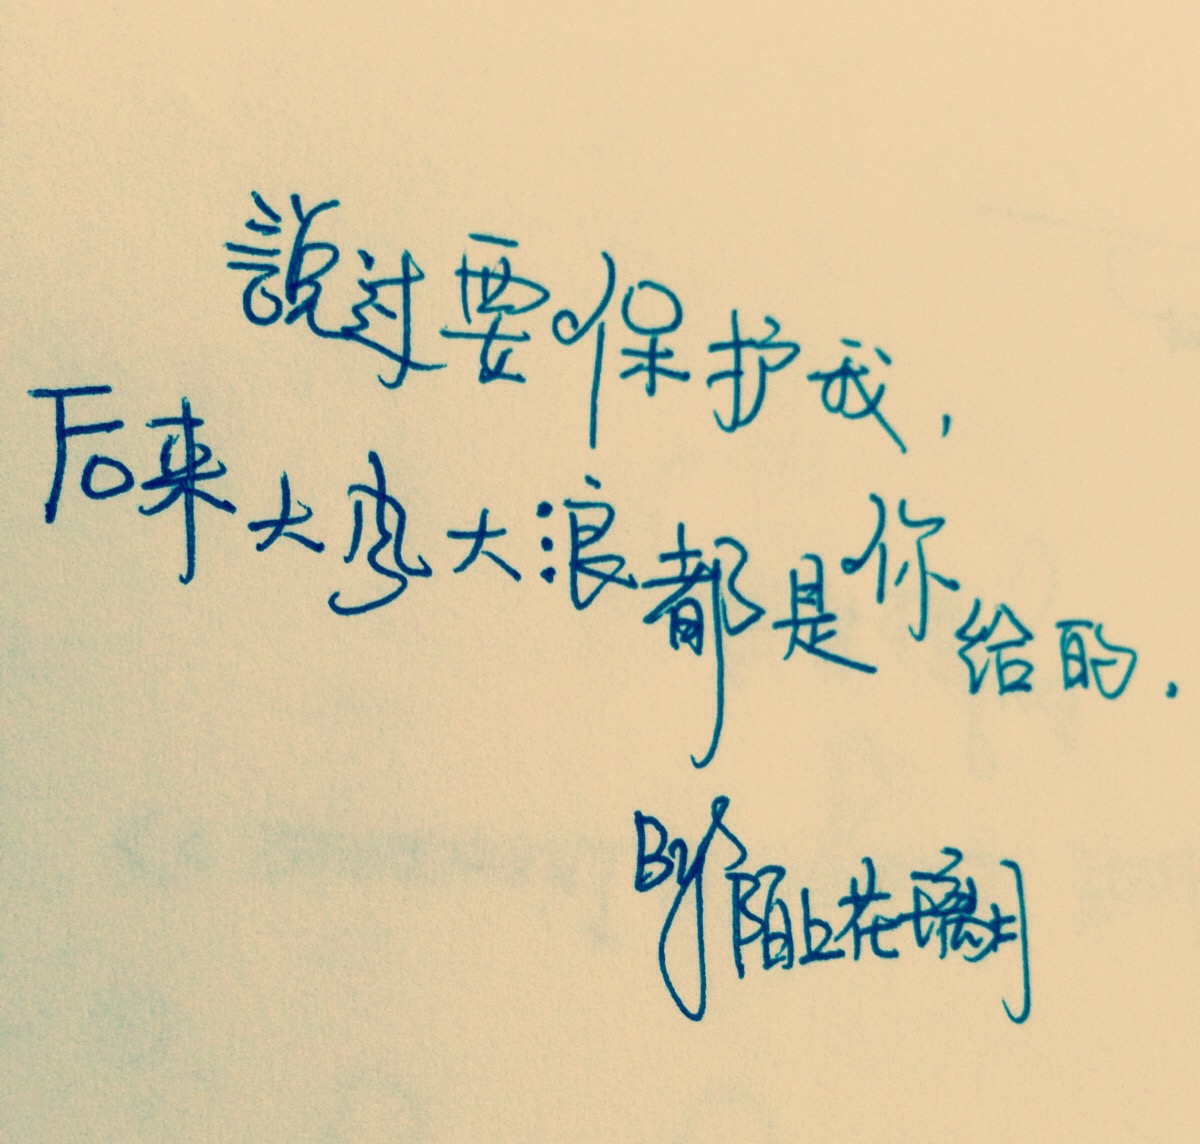 說过要保护我,
后来大风大浪都是你给的.
By陌上花璃